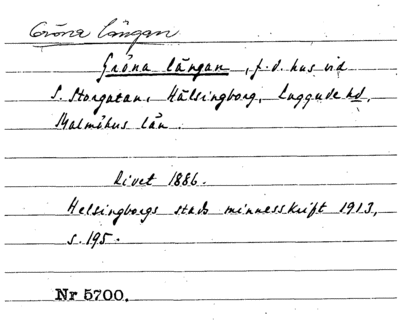 Gröna längan
Gröna längan, f.d. hus vid
S. Storgatan, Hälsingborg, Luggude hd,
Malmöhus län.
Rivet 1886.
Helsingborgs stads minnesskrift 1913,
s. 195.
Nr 5700.